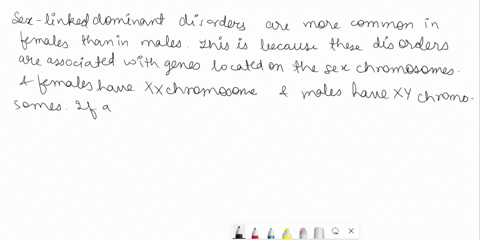 Sex-linked dominant disorders are more common in
females than in males. This is because these disorders
are associated with genes located on the sex chromosomes.
& females have XX chromosome & males have XY chromo-
somes. If a